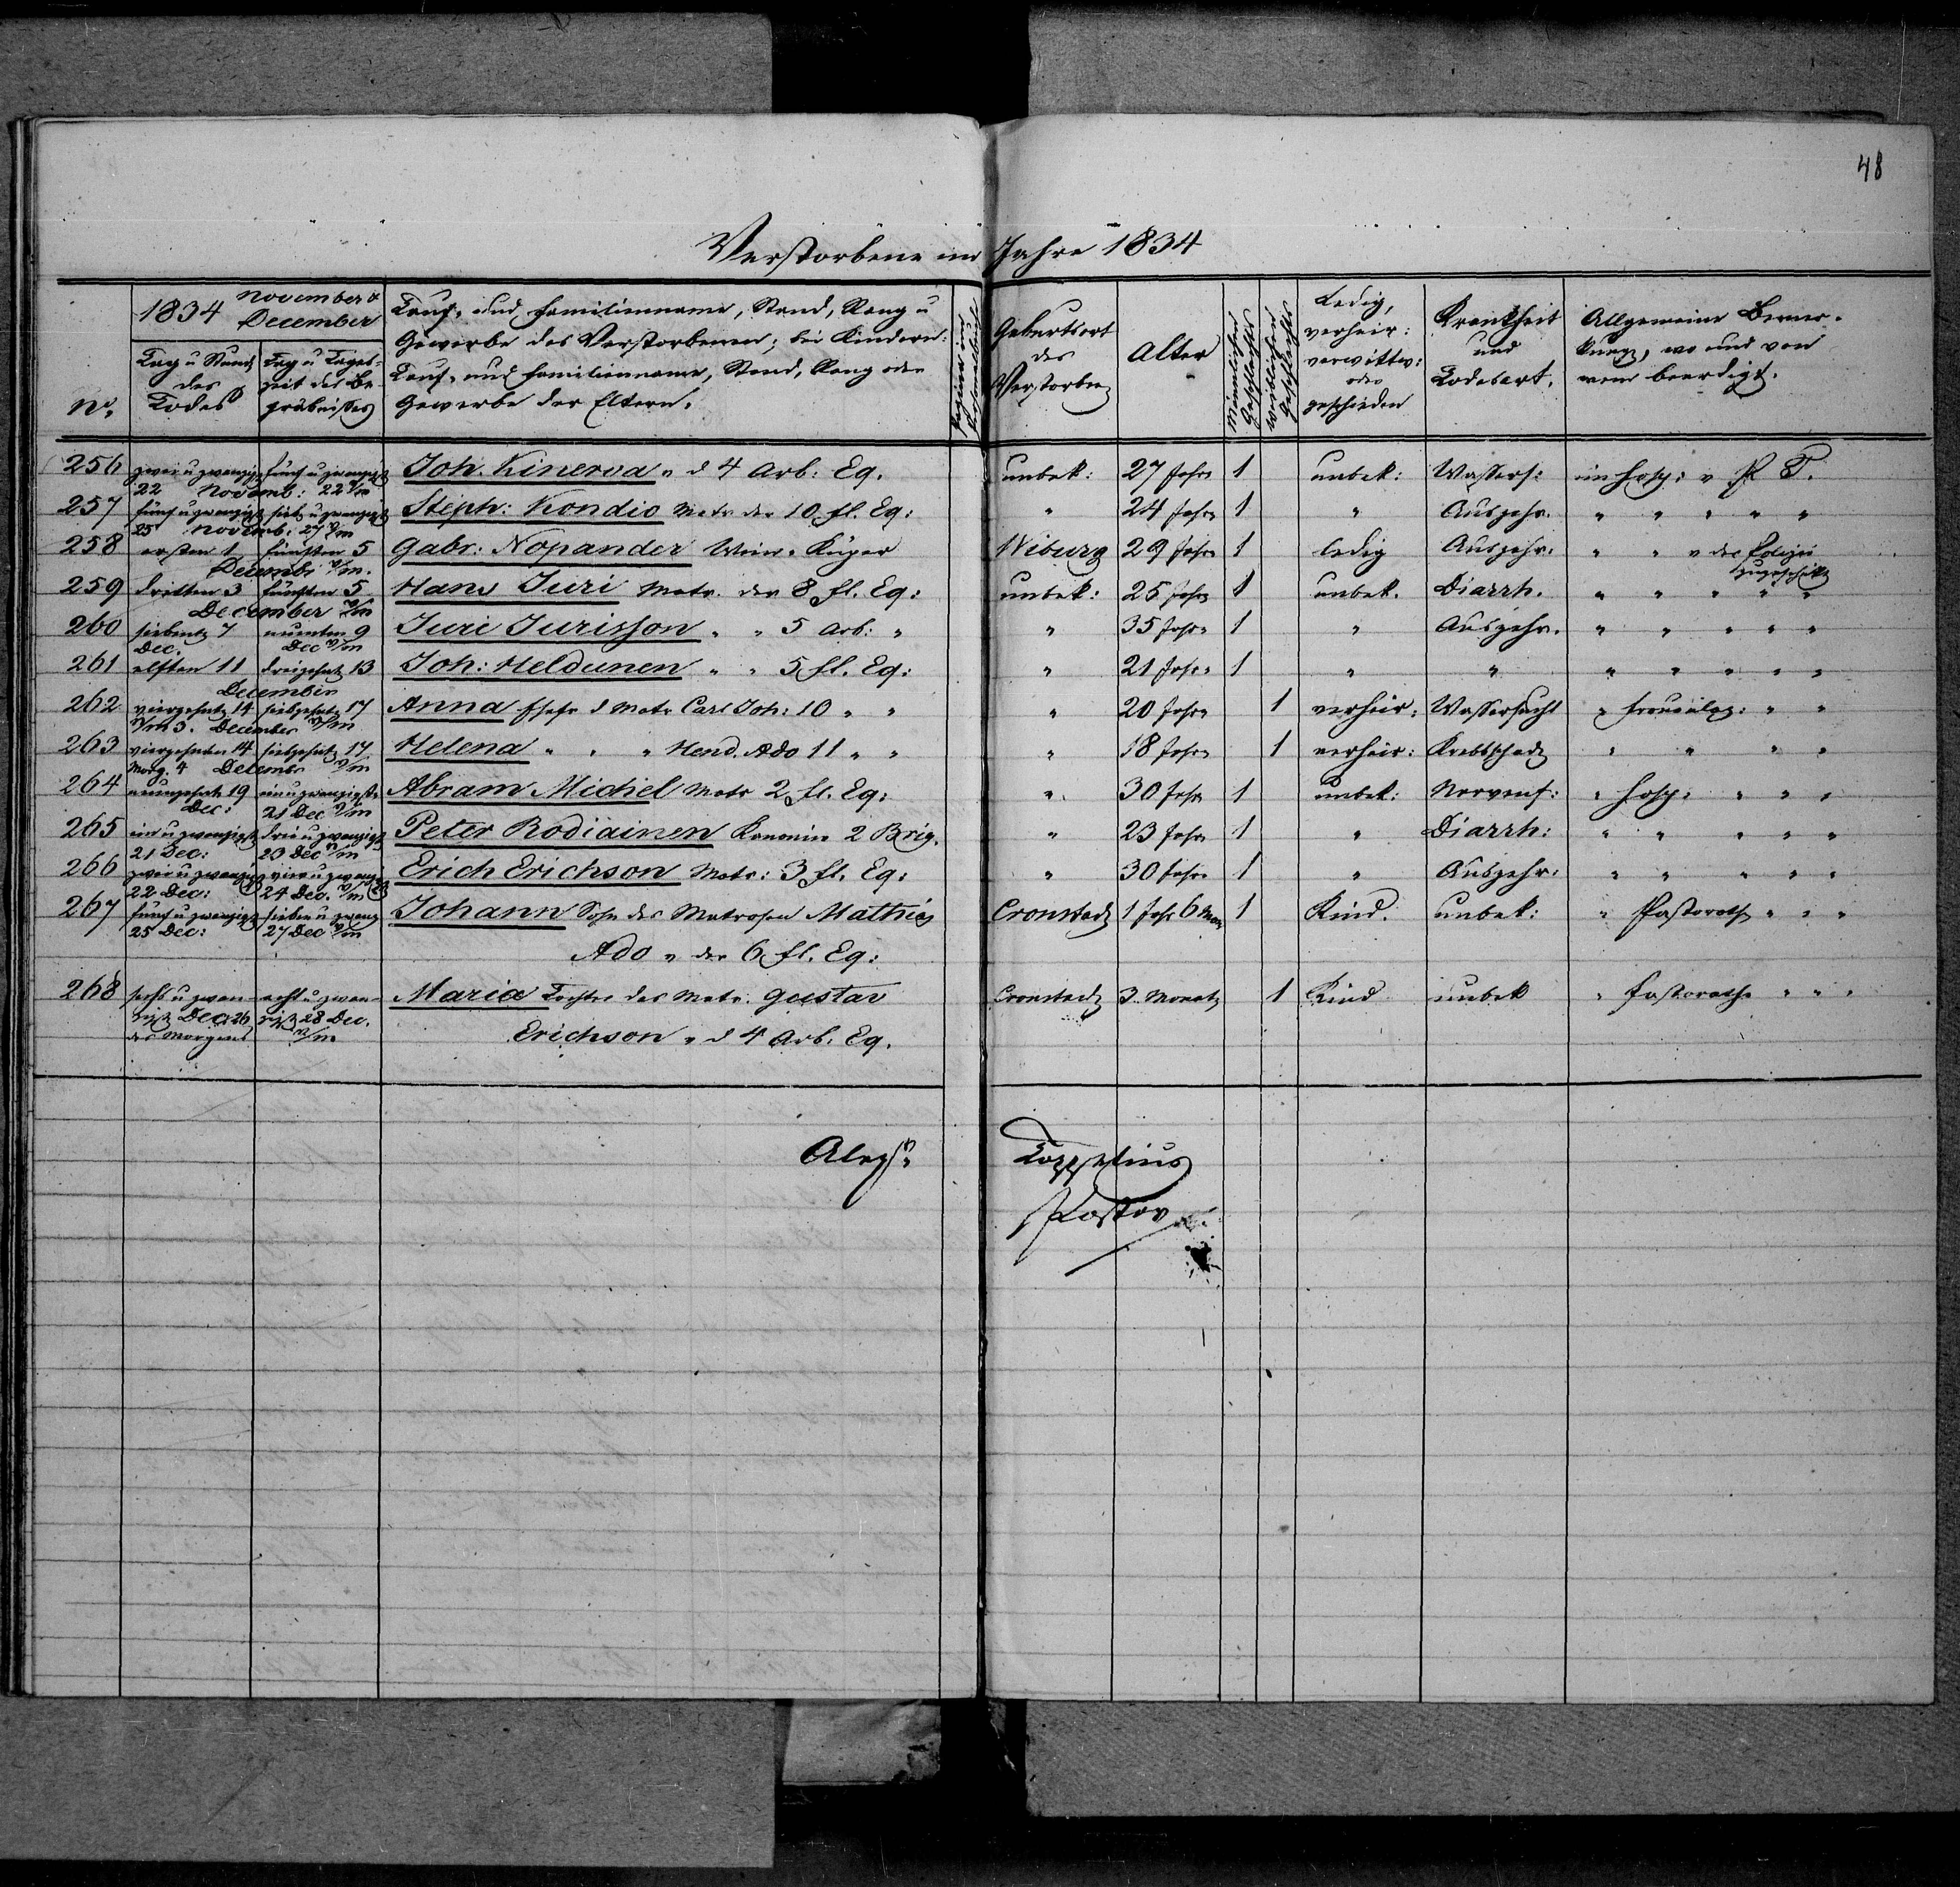 48
Verstorbene im Jahre 1834
No.
1834 November & December
Tag u Stunde des Todes
Tag u Tages-zeit des Be-gräbnisses
Tauf- und Familienname, Stand, Rang u
Gewerbe des Verstorbenen; bei Kindern:
Tauf- und Familienname, Stand, Rang oder
Gewerbe der Eltern.
Geburtsort des Verstorbn
Alter
Männlichen Geschlechts
Weiblichen Geschlechts
Ledig, verheir: verwittw: oder geschieden
Krankheit und Todesart.
Allgemeine Bemer-
kung, wo und von
wem beerdigt.
256 zwei u zwanzigst fünf u zwanzigst Joh. Kinerva " d 4 Arb: Eq. unbek: 27 Jahr 1 unbek: Wassers: im Hosp: v P T.
22 Novemb: 22 V/m
257 fünf u zwanzigst sieb u zwanzigst Steph: Kondio Matr der 10 fl. Eq: " 24 Jahr 1 " Auszehr. " " " " "
25 Novemb: 27 V/m
258 ersten 1 fünften 5 Gabr: Nopander Wiburg 29 Jahr 1 ledig Auszehr. " " v der Polizei
Decembr V/m. zugeschickt
259 dritten 3 fünften 5 Hans Juri Matr. der 8 fl. Eq: unbek: 25 Jahr 1 unbek. Diarrh. " " " " "
December V/m
260 siebente 7 neunten 9 Juri Jurisson " " 5 Arb: " " 35 Jahr 1 " Auszehr. " " " " "
Dec. Dec V/m
261 elften 11 dreizehnt 13 Joh: Heldunen " " 5 fl. Eq: " 21 Jahr 1 " " " " " " "
December
262 vierzehnt 14 siebzehnt 17 Anna Ehefr d Matr Carl Joh: 10 " " " 20 Jahr 1 verheir: Wassersucht " "  "
N/m 3. December V/m
263 vierzehnten 14 siebzehnt 17 Helena " " " Hend. Ado 11 " " " 18 Jahr 1 verheir: Krebsschad " " " "
Morg. 4 Decembr V/m
264 neunzehnt 19 ein u zwanzigst Abram Michel Matr 2 fl. Eq: " 30 Jahr 1 unbek: Nervenf: " Hosp: " " "
Dec: 21 Dec V/m
265 ein u zwanzigst drei u zwanzigst Peter Rodiainen Kanonier 2 Brig. " 23 Jahr 1 " Diarrh: " " " " "
21 Dec: 23 Dec V/m
266 zwei u zwanzig vier u zwanz Erich Erichson Matr: 3 fl. Eq: " 30 Jahr 1 " Auszehr: " " " " "
22 Dec: 24 Dec. V/m
267 fünf u zwanzigst sieben u zwanz Johann Sohn des Matrosen Mathies Cronstadt 1 Jahr 6 Mon 1 Kind. unbek: " Pastorath " " "
25 Dec: 27 Dec V/m
Ado " der 6 fl. Eq:
268 sechs u zwan- acht u zwan- Maria Tochter des Matr. Gustav Cronstadt 3 Monat 1 Kind unbek " Pastorathe " " "
zigst Dec 26 zigst 28 Dec.
des Morgens V/m Erichson " d 4 Arb. Eq.
Pastor